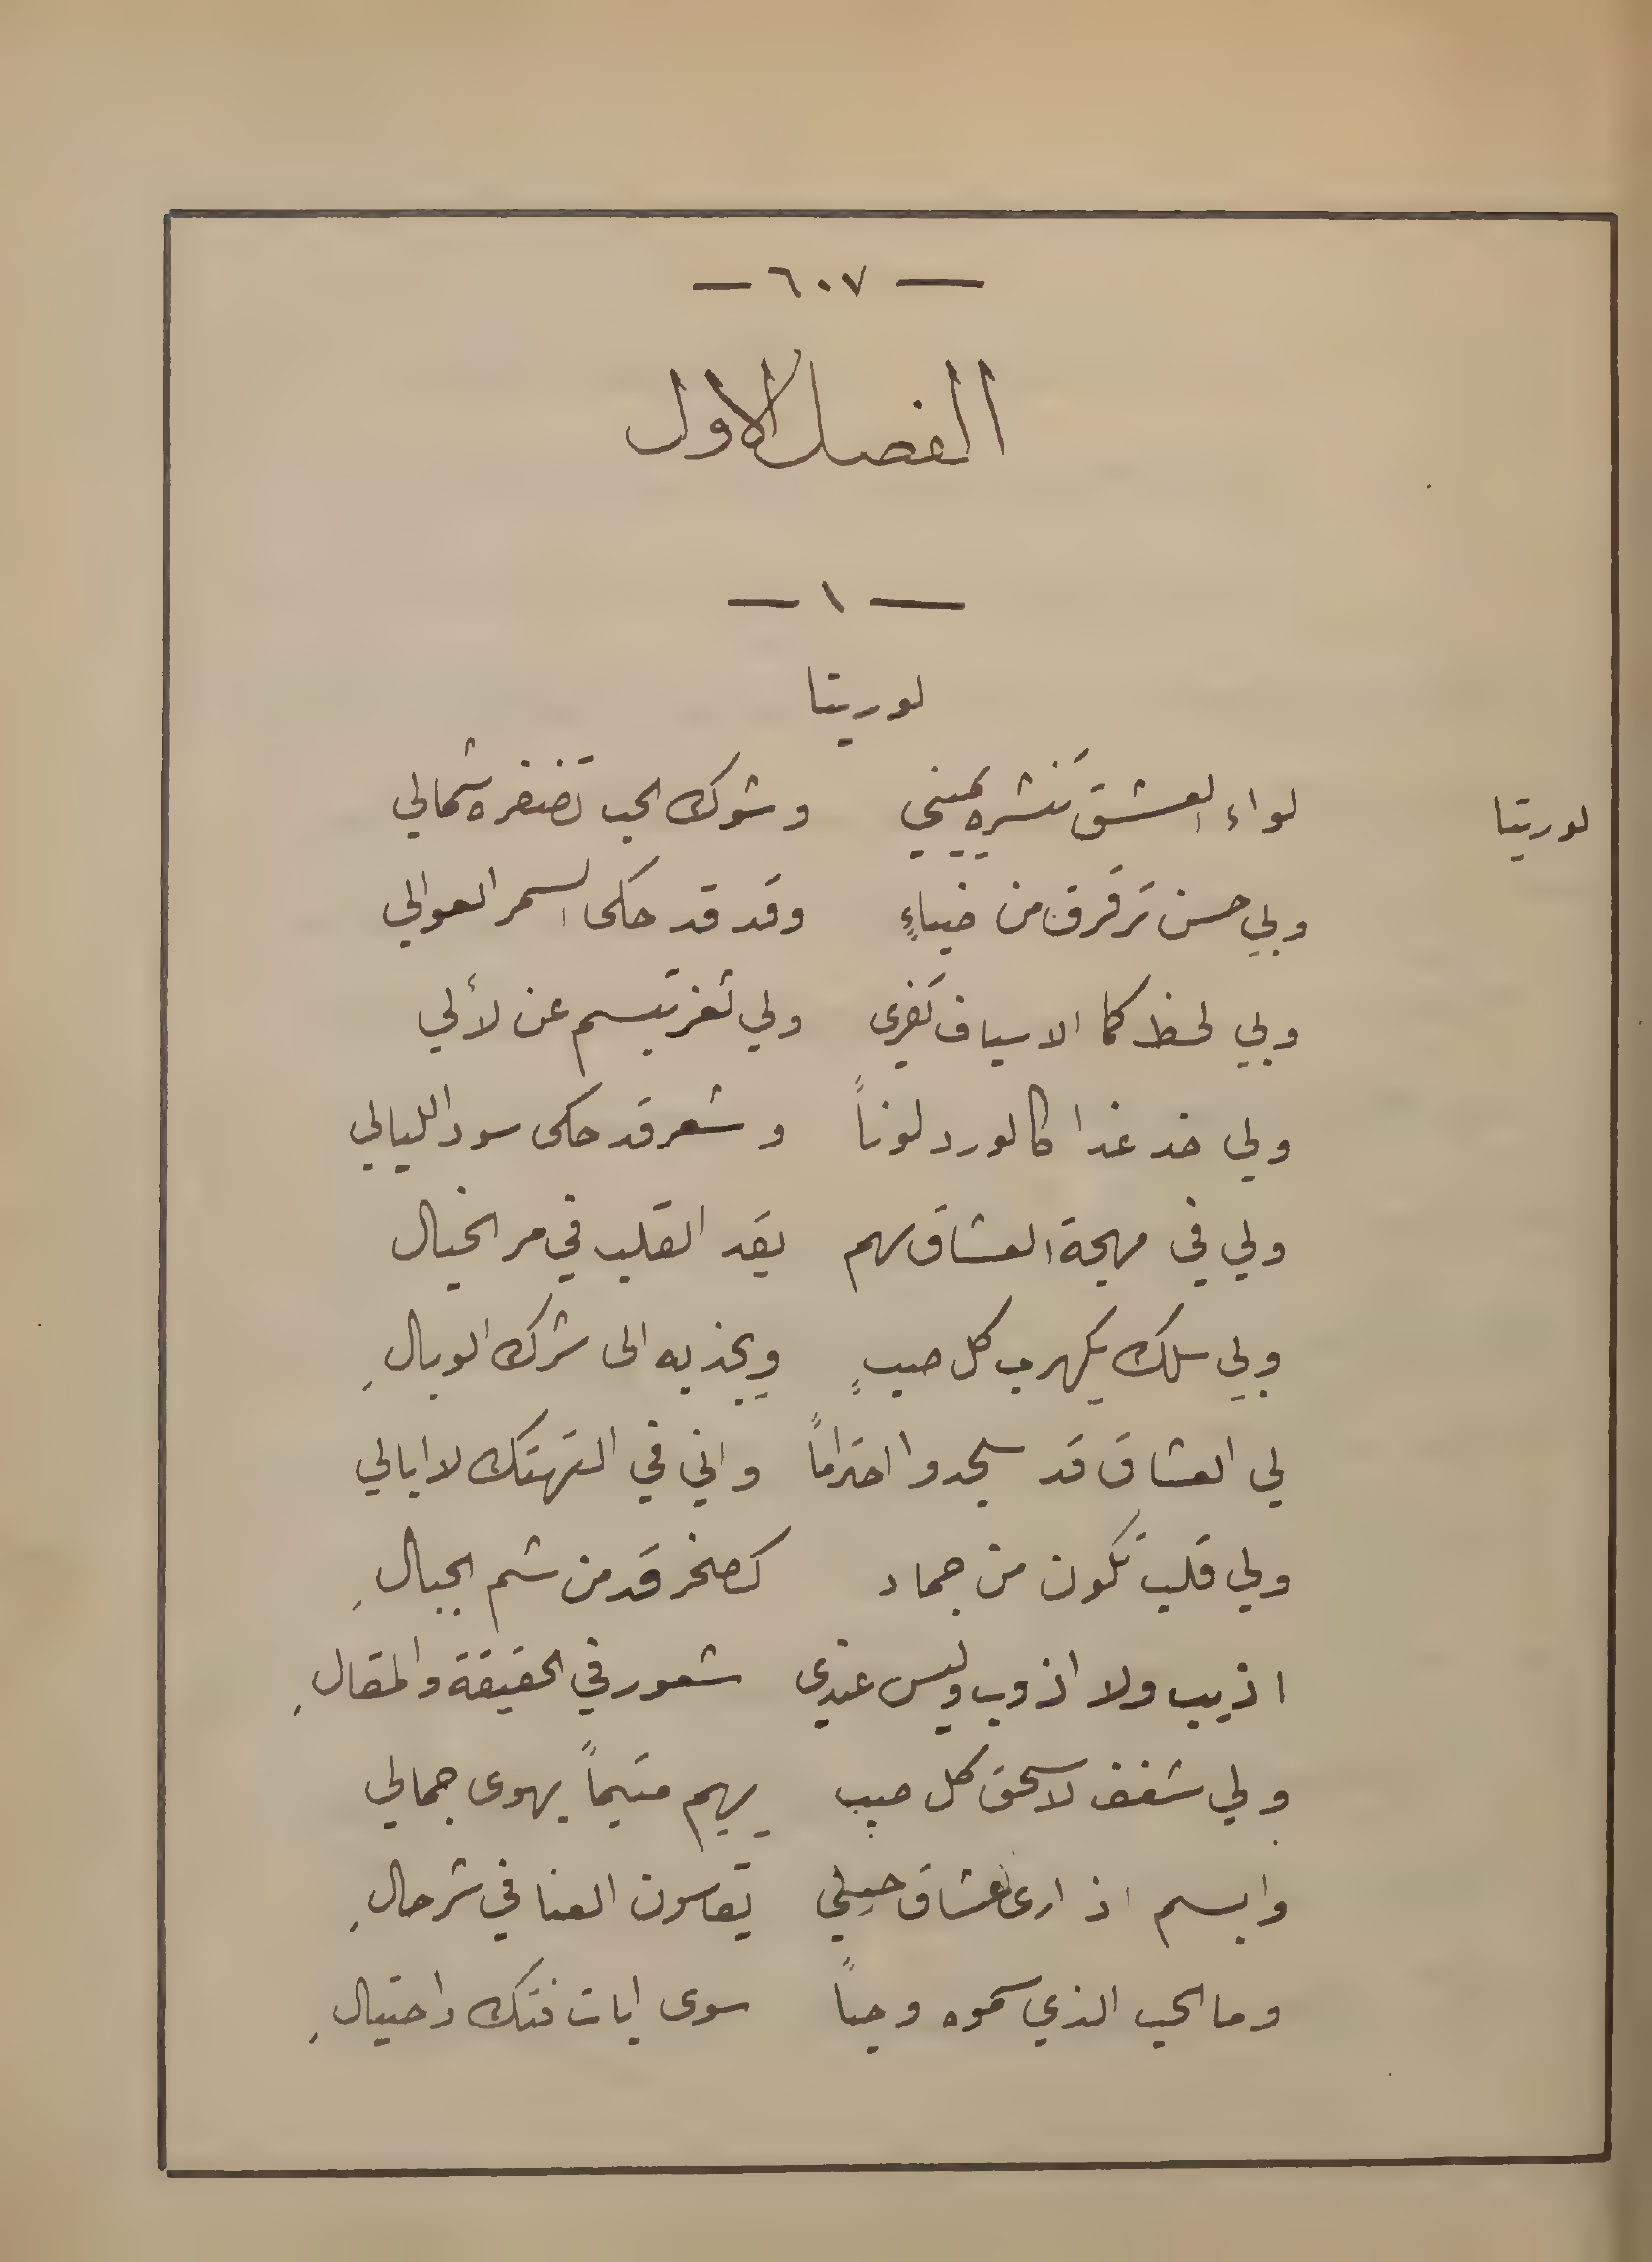 — ٦٠٧ —
الفصل الاول
— ١ —
لوريتا
لوريتا لواء العشق تنشره يميني وشوك الحب تضفره شمالي
ولي حسن ترقرق من ضياءٍ وقد قد حكى السمر العوالي
ولي لحظ كما الاسياف يفري ولي ثغر تبسم عن لألي
ولي خد غدا كالورد لوناً وشعر قد حكى سود الليالي
ولي في مهجة العشاق سهم يقد القلب في مر الخيال
ولي سلك يكهرب كل صبٍ ويجذبه الى شرك الوبالِ
لي العشاق قد سجدوا احتراماً واني في التهتك لا ابالي
ولي قلب تكون من جماد كصخر قد من شم الجبالِ
اذيب ولا اذوب وليس عندي شعور في الحقيقة والمقالِ
ولي شغف لاسحق كل صب يهيم متيماً يهوى جمالي
وابسم اذ ارى عشاق حولي يقاسون العنا في شر حالِ
وما الحب الذي سموه وحباً سوى ايات فتك واحتيالِ